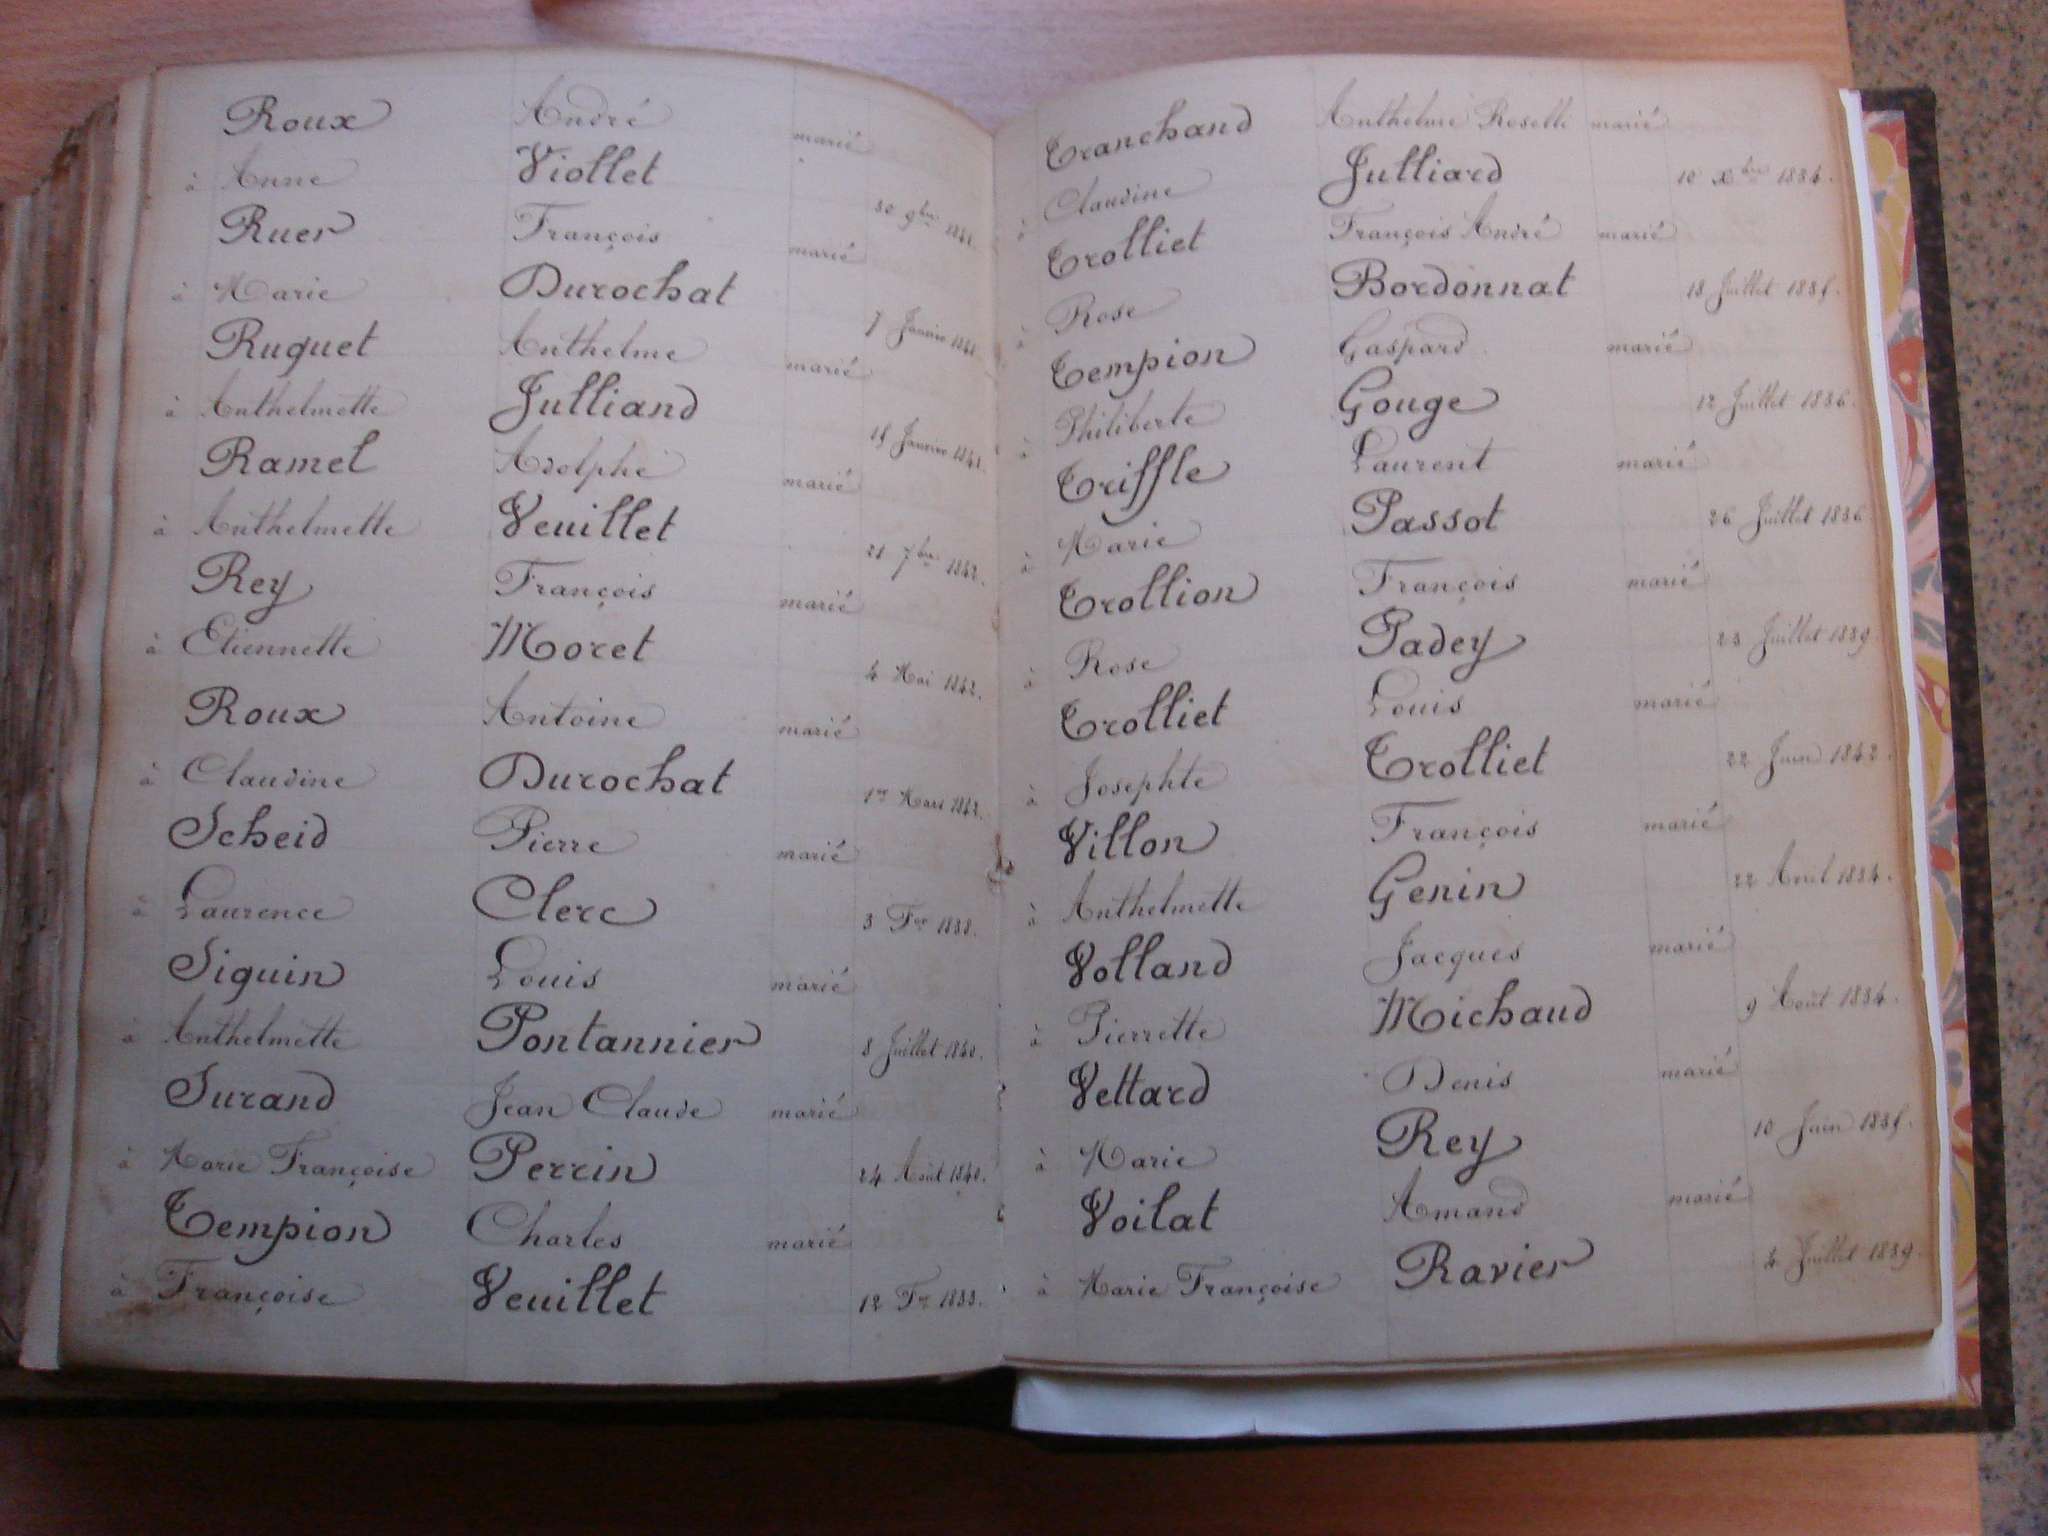 Roux André marié
à Anne Viollet 30 9bre 1841.
Ruer François marié
à Marie Durochat 7 Janvier 1841.
Ruguet Anthelme marié
à Anthelmette Julliand 15 Janvier 1841.
Ramel Adolphe marié
à Anthelmette Veuillet 21 7bre 1842.
Rey François marié
à Etiennette Moret 4 Mai 1842.
Roux Antoine marié
à Claudine Durochat 1er Mars 1842.
Scheid Pierre marié
à Laurence Clerc 3 Fer 1838.
Siguin Louis marié
à Anthelmette Pontannier 8 Juillet 1840.
Surand Jean Claude marié
à Marie Françoise Perrin 24 Août 1840.
Tempion Charles marié
à Françoise Veuillet 12 Fer 1833.
Tranchand Anthelme marié
à Claudine Julliard 10 Xbre 1834.
Trolliet François André marié
à Rose Bordonnat 18 Juillet 1835.
Tempion Gaspard marié
à Philiberte Gouge 12 Juillet 1836.
Triffle Laurent marié
à Marie Passot 26 Juillet 1836.
Trollion François marié
à Rose Padey 23 Juillet 1839.
Trolliet Louis marié
à Josephte Trolliet 22 Juin 1842.
Villon François marié
à Anthelmette Genin 22 Avril 1834.
Volland Jacques marié
à Pierrette Michaud 9 Août 1834.
Vettard Denis marié
à Marie Rey 10 Juin 1835.
Voilat Amand marié
à Marie Françoise Ravier 4 Juillet 1839.